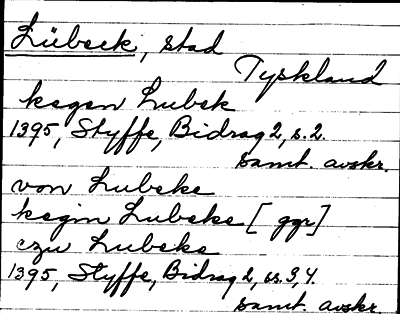 Lübeck, stad
Tyskland
kegen Lubek
1395, Styffe, Bidrag 2, s. 2.
samt. avskr.
von Lubeke
kegin Lubeke [ ggr]
czu Lubeke
1395, Styffe, Bidrag 2, ss. 3, 4.
samt. avskr.